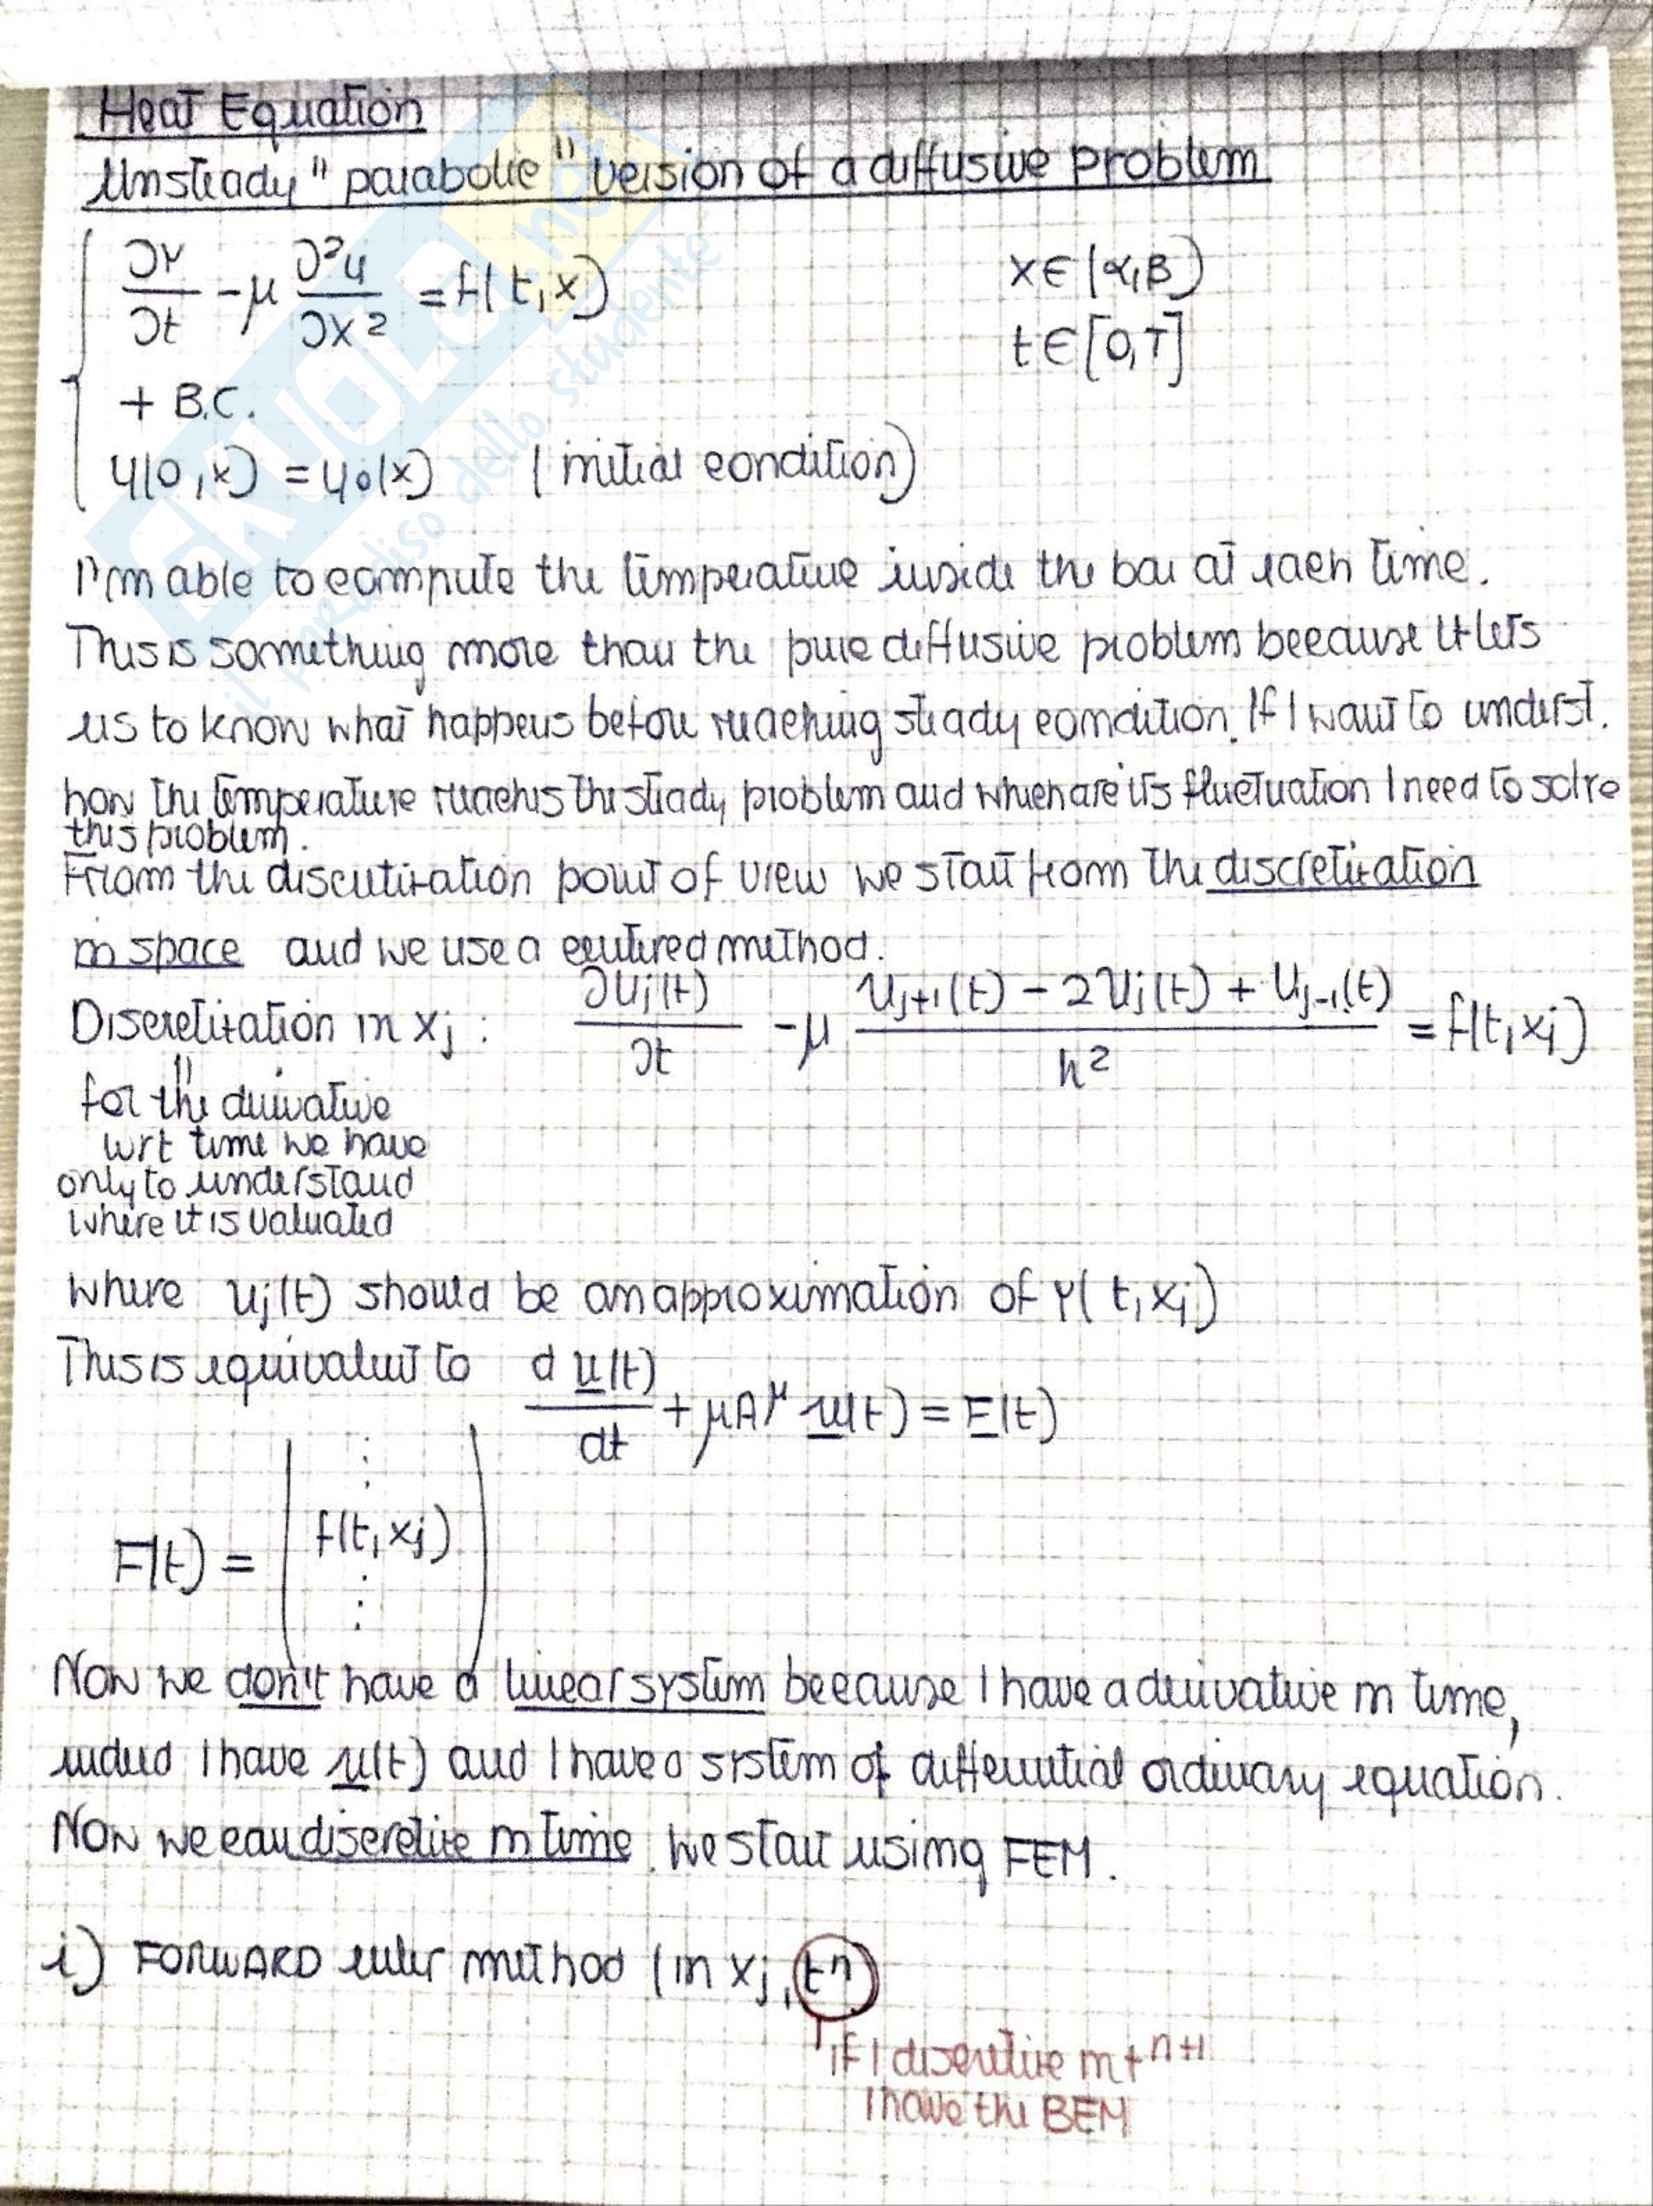 Heat Equation
Unsteady "parabolic" version of a diffusive problem
∂u/∂t - μ ∂²u/∂x² = f(t,x) x∈(α,β)
t∈[0,T]
+ B.C.
u(0,x) = u₀(x) (initial condition)
I'm able to compute the temperature inside the bar at each time.
This is something more than the pure diffusive problem because it lets
us to know what happens before reaching steady condition. If I want to underst.
how the temperature reaches the steady problem and which are its fluctuation I need to solve
this problem.
From the discretization point of view we start from the discretization
in space and we use a centered method.
Discretization in xj : ∂uj(t)/∂t - μ (uj+1(t) - 2uj(t) + uj-1(t))/h² = f(t,xj)
for the derivative
wrt time we have
only to understand
where it is valuated
where uj(t) should be an approximation of u(t,xj)
This is equivalent to d u(t)/dt + μA u(t) = F(t)
F(t) = ( ⋮ f(t,xj) ⋮ )
Now we don't have a linear system because I have a derivative in time,
indeed I have u(t) and I have a system of differential ordinary equation.
Now we can discretize in time. We start using FEM.
i) FORWARD euler method (in xj, tⁿ)
if I discretize in tⁿ⁺¹
I have the BEM
SKUOLA.net
il paradiso dello studente